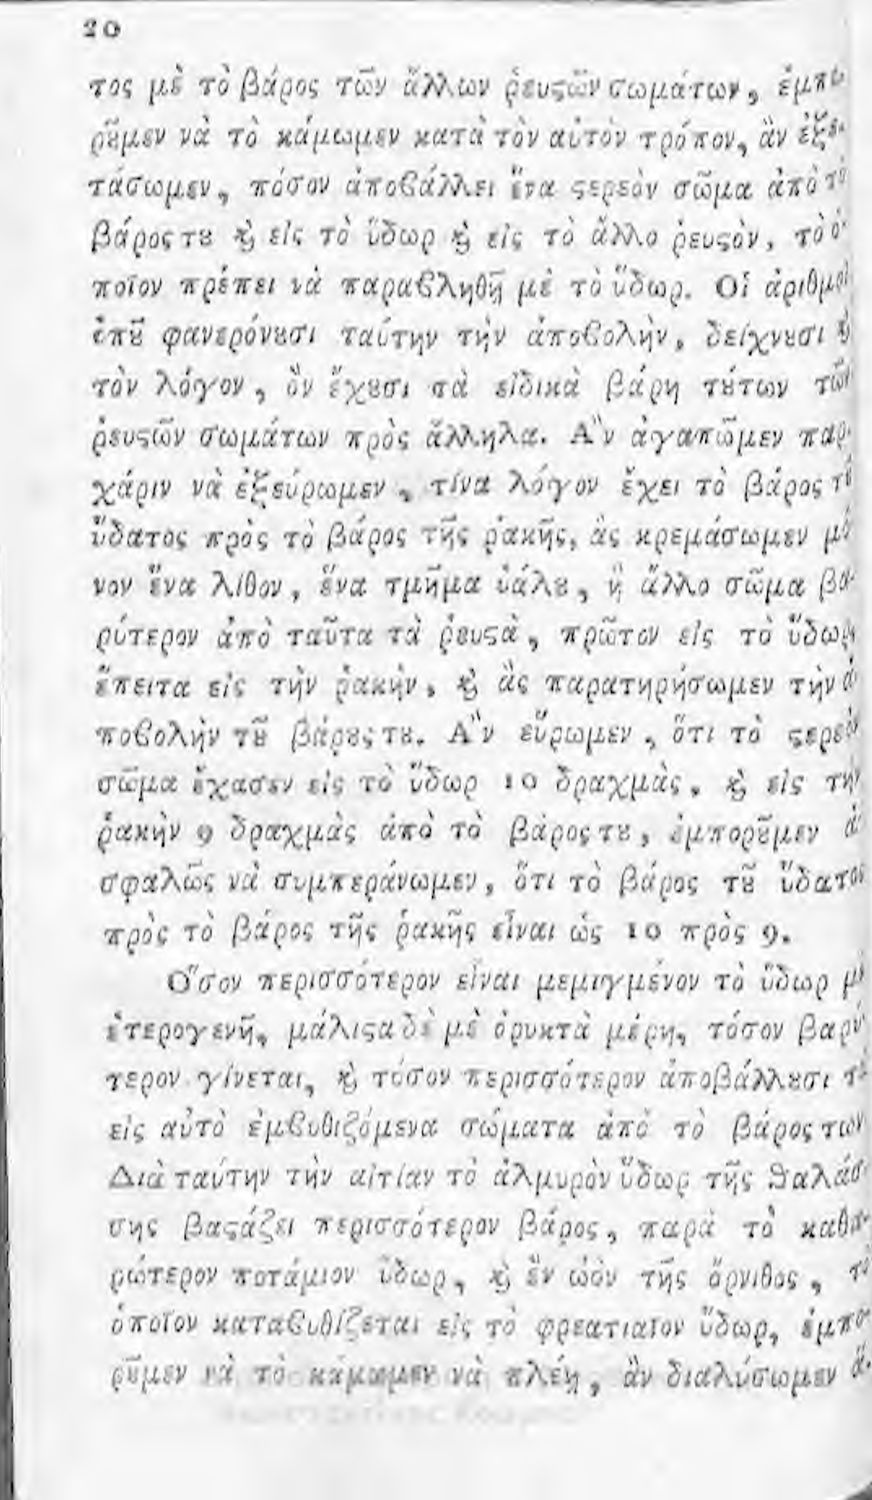 20
τος μὲ τὸ βάρος τῶν ἄλλων ῥευϛῶν σωμάτων, ἐμπο-
ρȣ͂μεν νὰ τὸ κάμωμεν κατὰ τὸν αὐτὸν τρόπον, ἂν ἐξε-
τάσωμεν, πόσον ἀποβάλλει ἕνα ϛερεὸν σῶμα ἀπὸ τὸ
βάρος τȣ ϗ εἰς τὸ ὕδωρ ϗ εἰς τὸ ἄλλο ῥευϛὸν, τὸ ὁ-
ποῖον πρέπει νὰ παραβληθῇ μὲ τὸ ὕδωρ. Οἱ ἀριθμοὶ
ὁπȣ͂ φανερόνȣσι ταύτην τὴν ἀποβολὴν, δείχνȣσι ϗ
τὸν λόγον, ὃν ἔχȣσι τὰ εἰδικὰ βάρη τȣ́των τῶν
ῥευϛῶν σωμάτων πρὸς ἄλληλα. Ἂν ἀγαπῶμεν παρ.
χάριν νὰ ἐξεύρωμεν, τίνα λόγον ἔχει τὸ βάρος τȣ͂
ὕδατος πρὸς τὸ βάρος τῆς ῥακῆς, ἂς κρεμάσωμεν μό-
νον ἕνα λίθον, ἕνα τμῆμα ὑάλȣ, ἢ ἄλλο σῶμα βα-
ρύτερον ἀπὸ ταῦτα τὰ ῥευϛὰ, πρῶτον εἰς τὸ ὕδωρ,
ἔπειτα εἰς τὴν ῥακὴν, ϗ ἂς παρατηρήσωμεν τὴν ἀ-
ποβολὴν τȣ͂ βάρȣς τȣ. Ἂν εὕρωμεν, ὅτι τὸ ϛερεὸν
σῶμα ἔχασεν εἰς τὸ ὕδωρ 10 δραχμὰς, ϗ εἰς τὴν
ῥακὴν 9 δραχμὰς ἀπὸ τὸ βάρος τȣ, ἐμπορȣ͂μεν ἀ-
σφαλῶς νὰ συμπεράνωμεν, ὅτι τὸ βάρος τȣ͂ ὕδατος
πρὸς τὸ βάρος τῆς ῥακῆς εἶναι ὡς 10 πρὸς 9.
Ὅσον περισσότερον εἶναι μεμιγμένον τὸ ὕδωρ μὲ
ἑτερογενῆ, μάλιϛα δὲ μὲ ὀρυκτὰ μέρη, τόσον βαρύ-
τερον γίνεται, ϗ τόσον περισσότερον ἀποβάλλȣσι τὰ
εἰς αὐτὸ ἐμβυθιζόμενα σώματα ἀπὸ τὸ βάρος των
Διὰ ταύτην τὴν αἰτίαν τὸ ἁλμυρὸν ὕδωρ τῆς θαλάσ-
σης βαϛάζει περισσότερον βάρος, παρὰ τὸ καθα-
ρώτερον ποτάμιον ὕδωρ, ϗ ἓν ὠὸν τῆς ὄρνιθος, τὸ
ὁποῖον καταβυθίζεται εἰς τὸ φρεατιαῖον ὕδωρ, ἐμπο-
ρȣ͂μεν νὰ τὸ κάμωμεν νὰ πλέῃ, ἂν διαλύσωμεν ἅ-